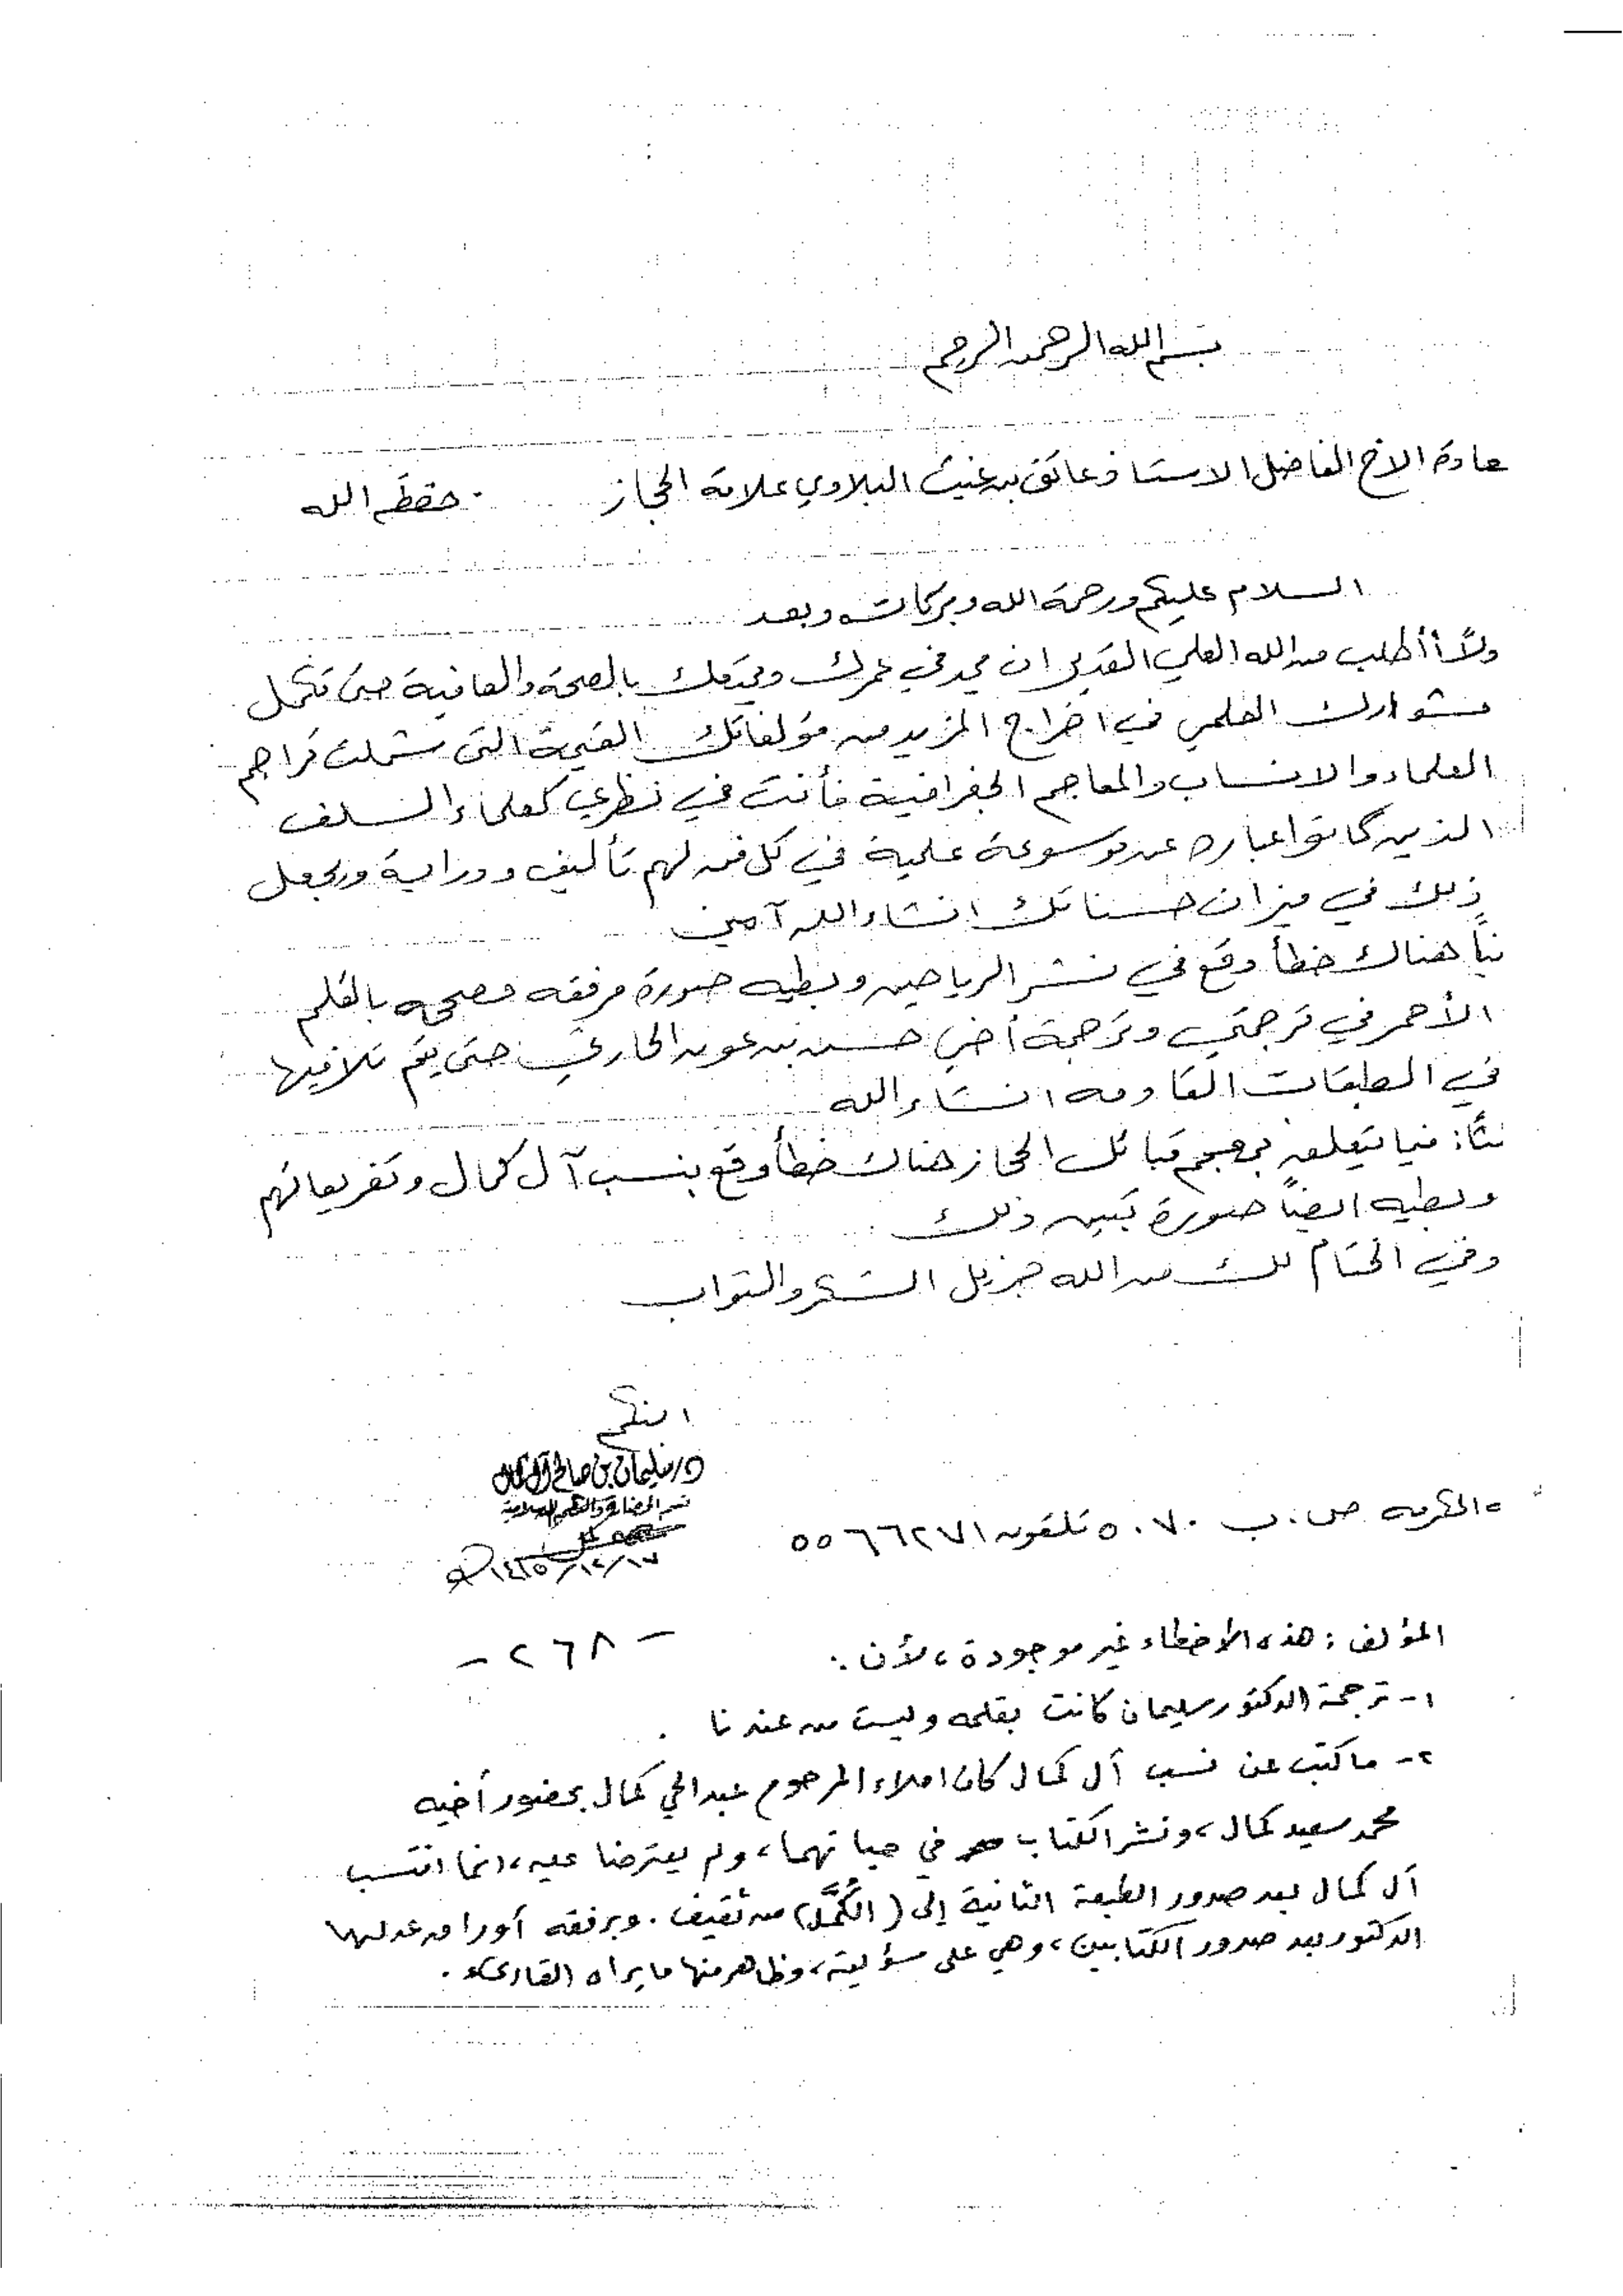 بسم الله الرحمن الرحيم
عادة الاخ الفاضل الاستاذ عاتق بن غيث البلادي علامة الحجاز حفظه الله
السلام عليكم ورحمة الله وبركاته وبعد
ولاً أطلب من الله العلي القدير ان يمد في عمرك ويمتعك بالصحة والعافية حتى تكمل
مشوارك العلمي في اخراج المزيد من مؤلفاتك القيمة التى شملت تراجم
العلماء والانساب والمعاجم الجغرافية فأنت في نظري كعلماء السلف
الذين كانوا عباره عن موسوعة علمية في كل فن لهم تأليف ودراية ويجعل
ذلك في ميزان حسناتك انشاء الله آمين
نياً هناك خطأ وقع في نشر الرياحين وبطيه صورة مرفقه مصححه بالقلم
الأحمر في ترجمتي وترجمة أخي حسن بن عون الحارثي حتى يتم تلافيها
في الطبقات القادمه انشاء الله
لثاً: فيما يتعلق بمعجم قبائل الحجاز هناك خطأ وقع بنسب آل كمال وتفريعاتهم
وبطيه ايضاً صورة تبين ذلك
وفي الختام لك من الله جزيل الشكر والثواب
د/سليمان بن صالح آل كمال
قسم الحضارة والنظم الاسلامية
ة المكرمه ص.ب ٥٠٧٠ تلفون ٥٥٦٦٢٧١
١٤٢٥/١٢/١٧هـ
المؤلف: هذه الأخطاء غير موجودة، لأن:
- ٢٦٨ -
١- ترجمة الدكتور سليمان كانت بقلمه وليست من عندنا.
٢- ما كتب عن نسب آل كمال كان املاء المرحوم عبدالحي كمال بحضور أخيه
محمد سعيد كمال، ونشر الكتاب في حياتهما، ولم يعترضا عليه، انما انتسب
آل كمال بعد صدور الطبعة الثانية إلى (الكُمَّل) من ثقيف. وبرفقه أوراق عدلها
الدكتور بعد صدور الكتابين، وهي على مسؤليته، وظاهر منها ما يراه القارىء.